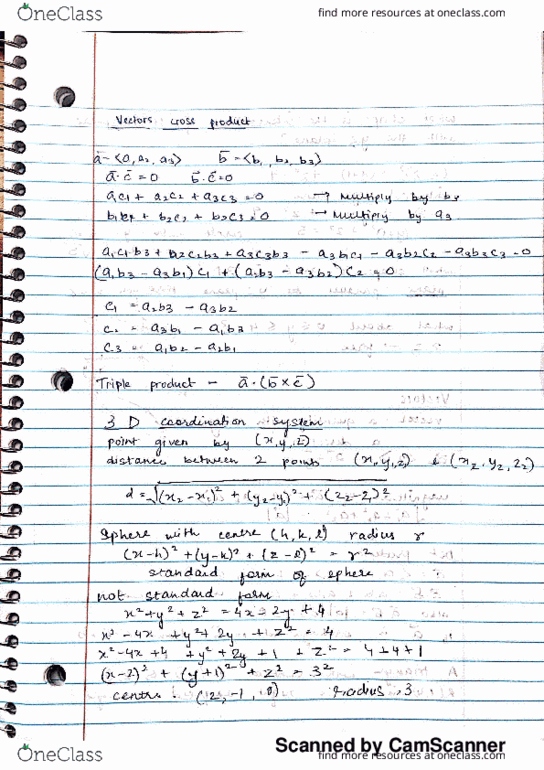 OneClass
find more resources at oneclass.com
Vectors cross product
a̅ = <0, a₂, a₃> b̅ = <b₁, b₂, b₃>
a̅·c̅ = 0 b̅·c̅ = 0
a₁c₁ + a₂c₂ + a₃c₃ = 0 → Multiply by b₃
b₁c₁ + b₂c₂ + b₃c₃ = 0 → Multiply by a₃
a₁c₁b₃ + a₂c₂b₃ + a₃c₃b₃ - a₃b₁c₁ - a₃b₂c₂ - a₃b₃c₃ = 0
(a₁b₃ - a₃b₁)c₁ + (a₂b₃ - a₃b₂)c₂ = 0
c₁ = a₂b₃ - a₃b₂
c₂ = a₃b₁ - a₁b₃
c₃ = a₁b₂ - a₂b₁
Triple product - a̅·(b̅×c̅)
3 D coordination system
point given by (x,y,z)
distance between 2 points (x,y,z) & (x₂,y₂,z₂)
d = √(x₂-x₁)² + (y₂-y)² + (z₂-z)²
Sphere with centre (h,k,l) radius r
(x-h)² + (y-k)² + (z-l)² = r²
standard form of sphere
not standard form
x²+y²+z² = 4x-2y+4
x² - 4x + y² + 2y + z² = 4
x² - 4x + 4 + y² + 2y + 1 + z² = 4+4+1
(x-2)² + (y+1)² + z² = 3²
centre : (2, -1, 0) radius : 3
Scanned by CamScanner
OneClass
find more resources at oneclass.com